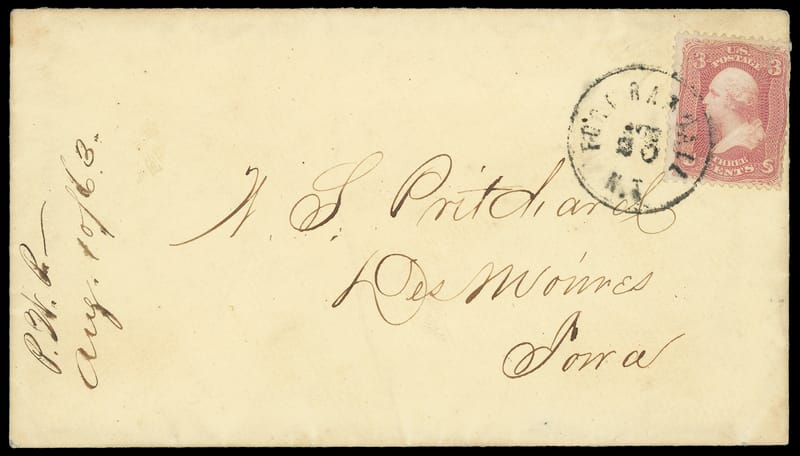 U.S. POSTAGE
3 3
THREE CENTS
FORT RANDALL
N.T.
W. S. Pritchard
Des Moines
Iowa
Aug. 10/63.